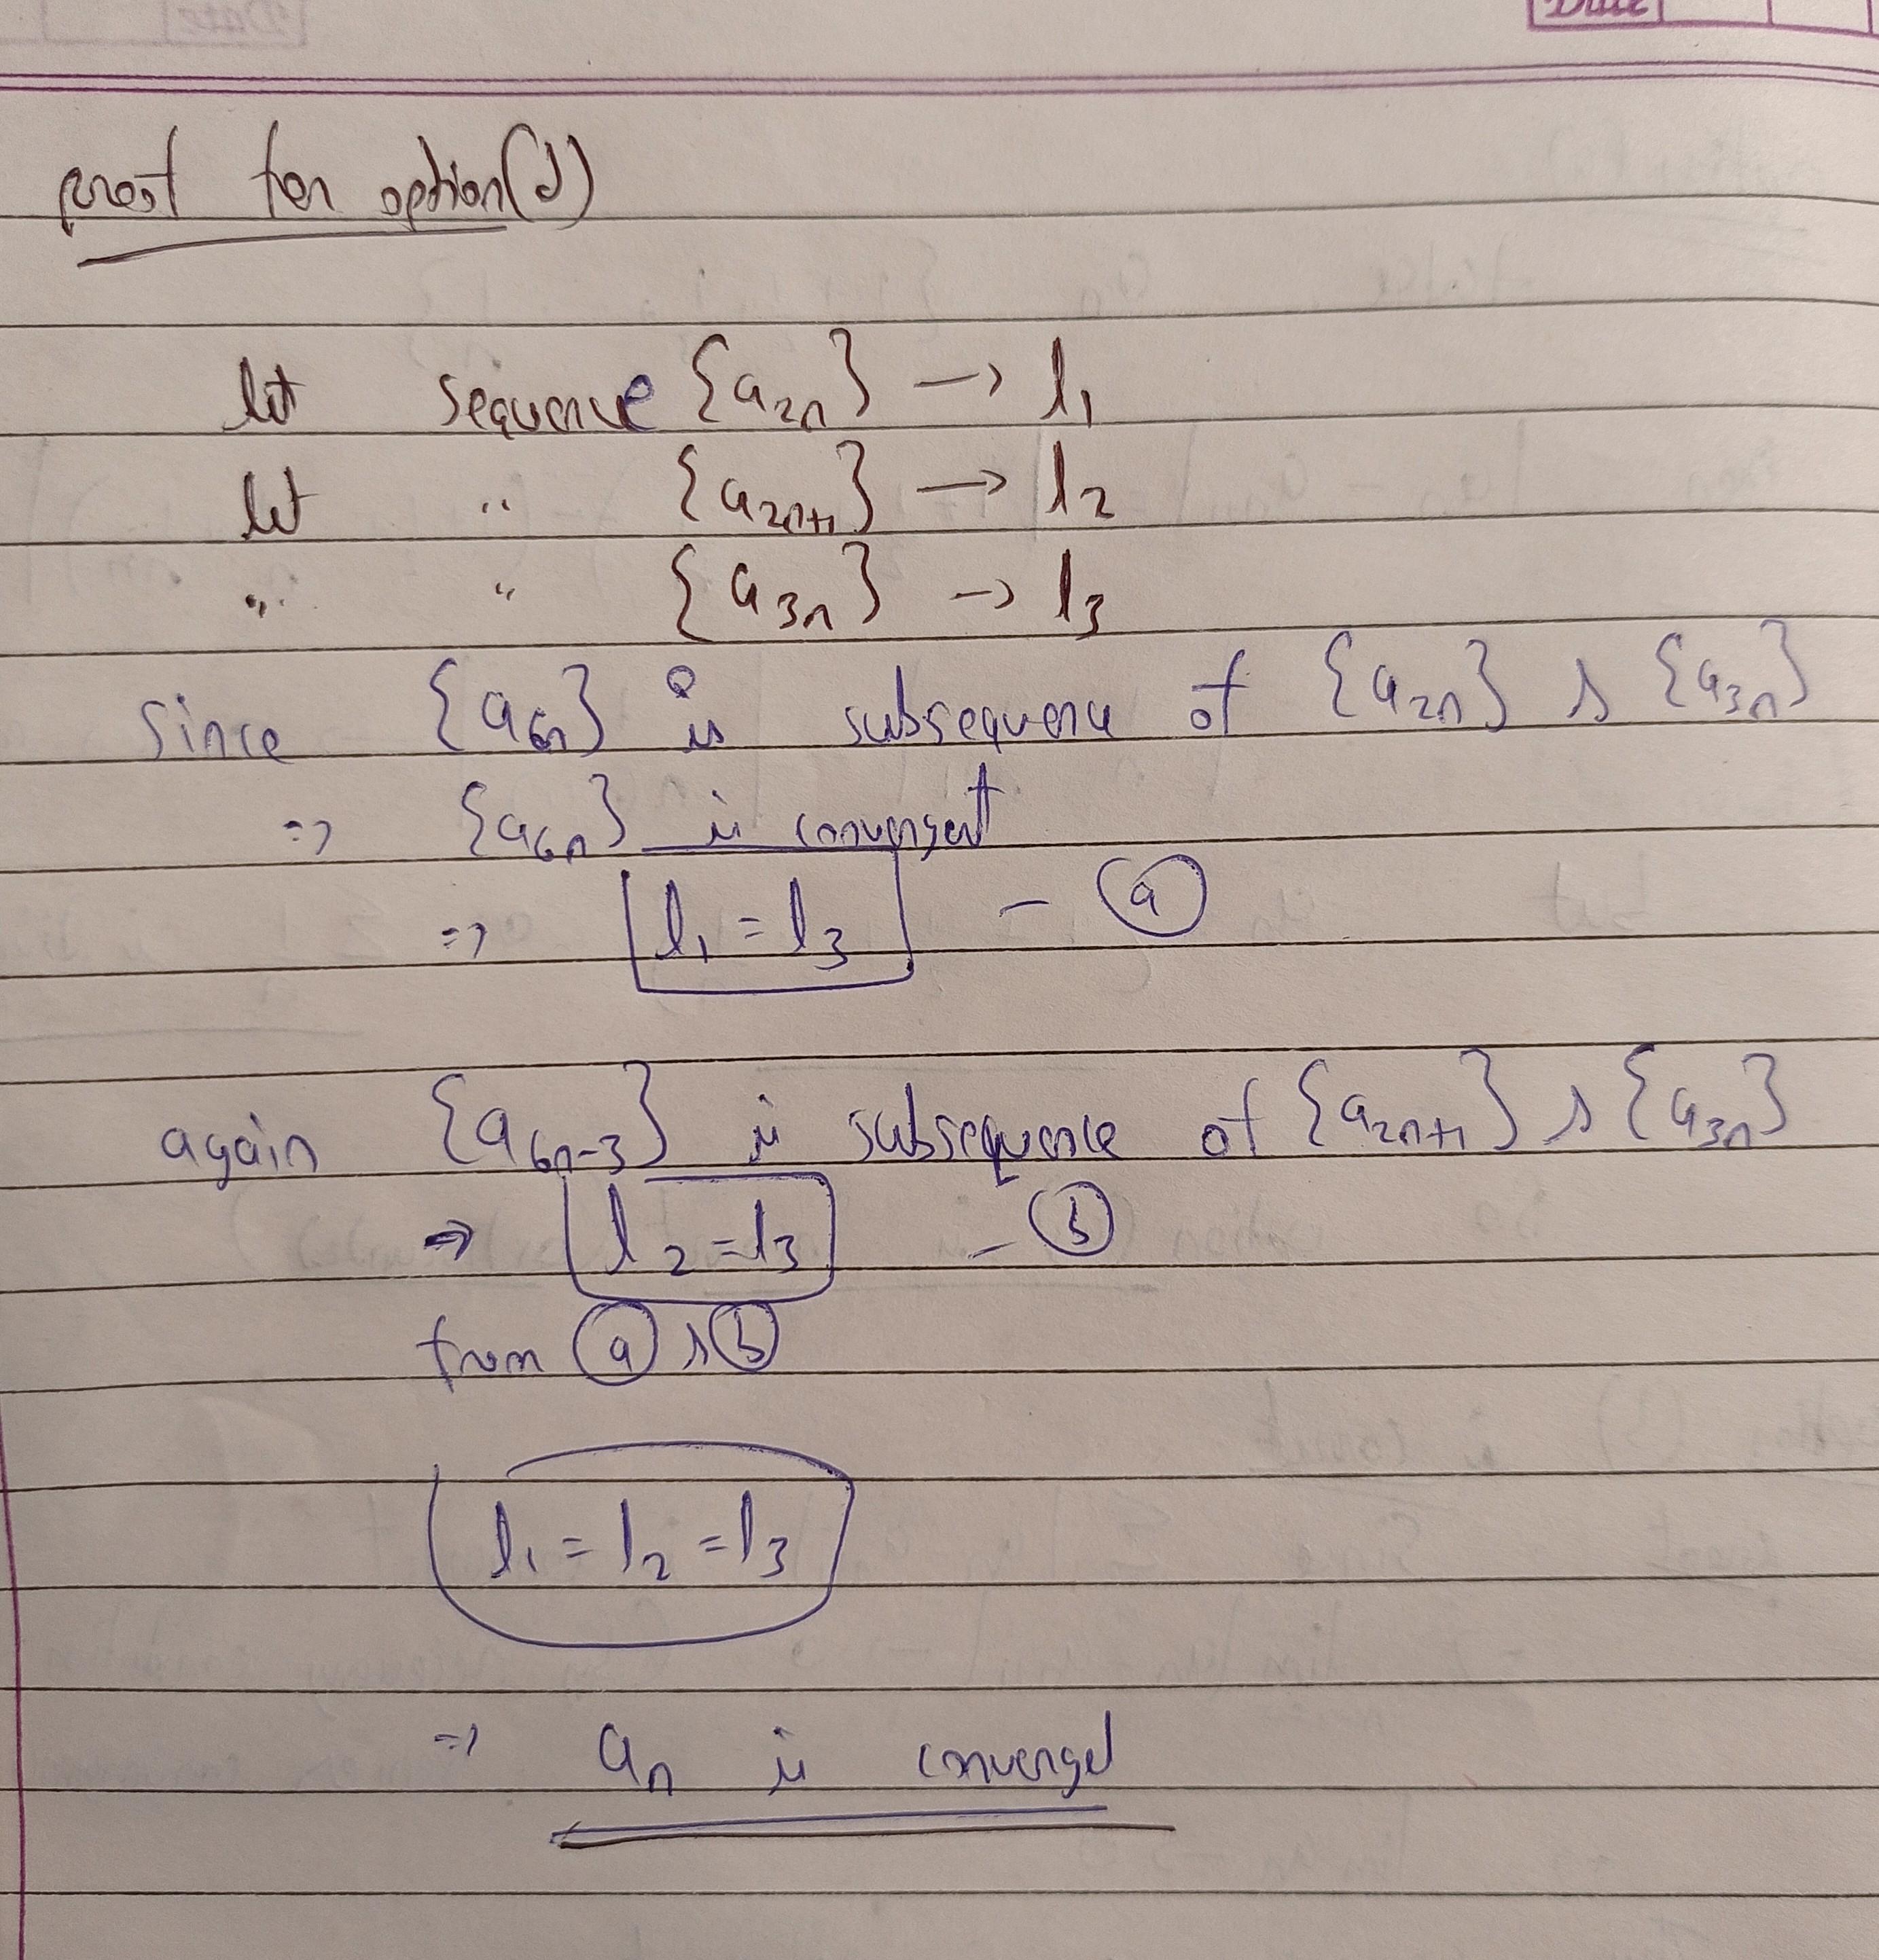 Date
proof for option(d)
let sequence {a2n} → l1
let " {a2n+1} → l2
" " {a3n} → l3
since {a6n} is subsequence of {a2n} & {a3n}
=> {a6n} is convergent
=> l1 = l3 - (a)
again {a6n-3} is subsequence of {a2n+1} & {a3n}
=> l2 = l3 - (b)
from (a) & (b)
l1 = l2 = l3
=> an is convergent